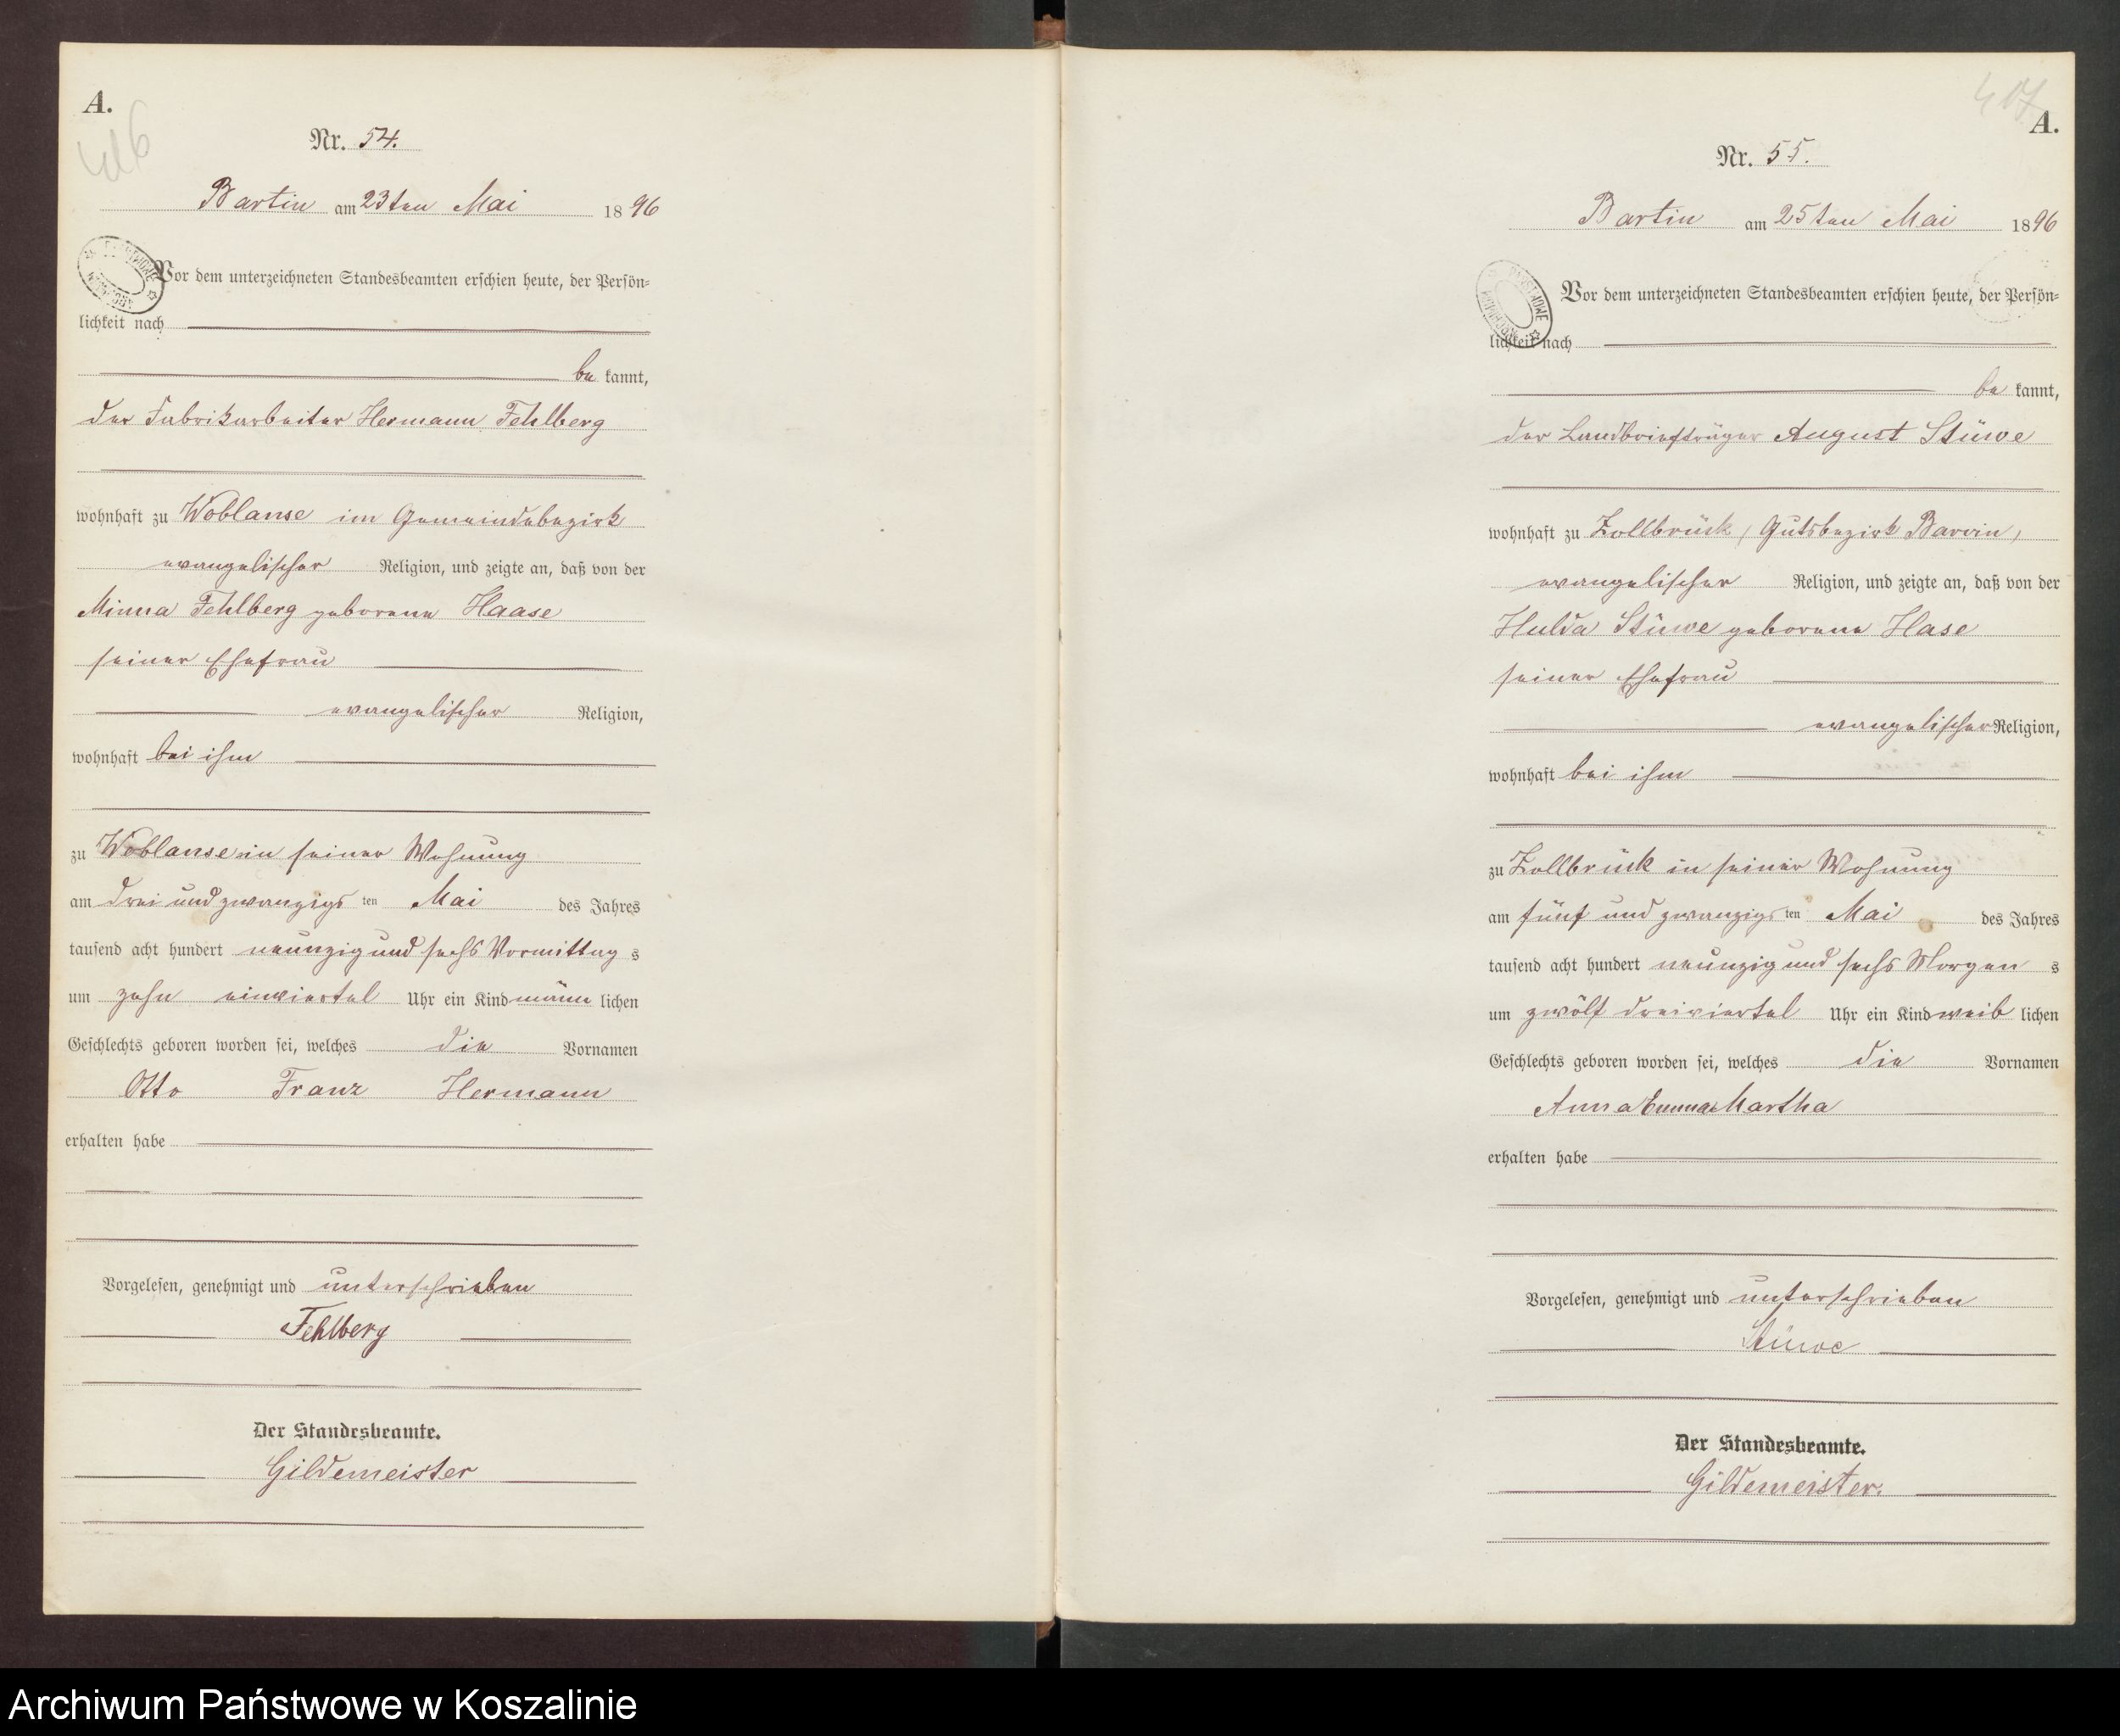 A.
416
Nr. 54.
Bartin am 23ten Mai 1896
Vor dem unterzeichneten Standesbeamten erschien heute, der Persön-
lichkeit nach
be kannt,
der Fabrikarbeiter Hermann Fehlberg
wohnhaft zu Woblanse im Gemeindebezirk
evangelischer Religion, und zeigte an, daß von der
Minna Fehlberg geborene Haase
seiner Ehefrau
evangelischer Religion,
wohnhaft bei ihm
zu Woblanse in seiner Wohnung
am drei und zwanzigs ten Mai des Jahres
tausend acht hundert neunzig und sechs Vormittag s
um zehn einviertel Uhr ein Kind männ lichen
Geschlechts geboren worden sei, welches die Vornamen
Otto Franz Hermann
erhalten habe
Vorgelesen, genehmigt und unterschrieben
Fehlberg
Der Standesbeamte.
Gildemeister
417
A.
Nr. 55.
Bartin am 25ten Mai 1896
Vor dem unterzeichneten Standesbeamten erschien heute, der Persön-
lichkeit nach
be kannt,
der Landbriefträger August Stüwe
wohnhaft zu Zollbrück (Gutsbezirk Barvin)
evangelischer Religion, und zeigte an, daß von der
Hulda Stüwe geborene Hase
seiner Ehefrau
evangelischer Religion,
wohnhaft bei ihm
zu Zollbrück in seiner Wohnung
am fünf und zwanzigs ten Mai des Jahres
tausend acht hundert neunzig und sechs Morgen s
um zwölf dreiviertel Uhr ein Kind weib lichen
Geschlechts geboren worden sei, welches die Vornamen
Anna Emma Martha
erhalten habe
Vorgelesen, genehmigt und unterschrieben
Stüwe
Der Standesbeamte.
Gildemeister.
Archiwum Państwowe w Koszalinie